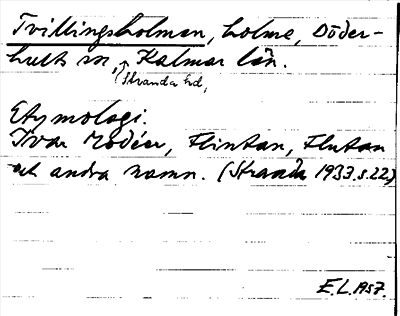 Tvillingsholman, holme, Döder-
hults sn, Kalmar län.
Stranda hd,
Etymologi.
Ivar Modéer, Flintan, Flutan
och andra namn. (Stranda 1933.s.22)
E.L. 1957.